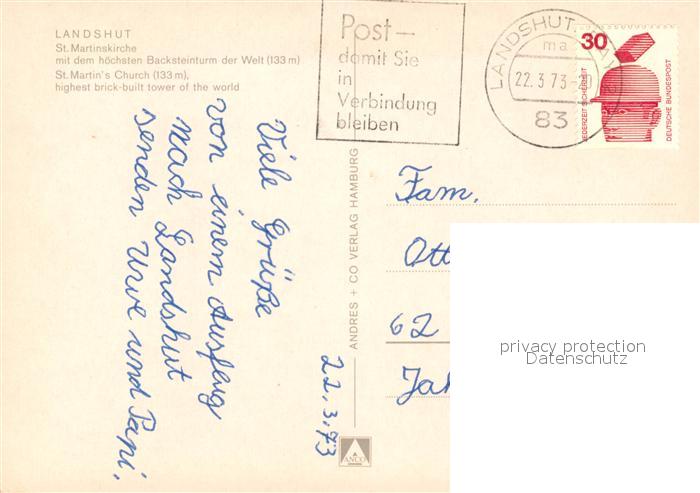 LANDSHUT
St. Martinskirche
mit dem höchsten Backsteinturm der Welt (133 m)
St. Martin's Church (133 m),
highest brick-built tower of the world
Post—
damit Sie
in
Verbindung
bleiben
LANDSHUT
ma
22.3.73
83
30
JEDERZEIT SICHERHEIT
DEUTSCHE BUNDESPOST
Viele Grüße
von einem Ausflug
nach Landshut
senden Uwe und Papi.
22.3.73
ANDRES + CO VERLAG HAMBURG
ANCO
Fam.
Ott
62
Jah
privacy protection
Datenschutz